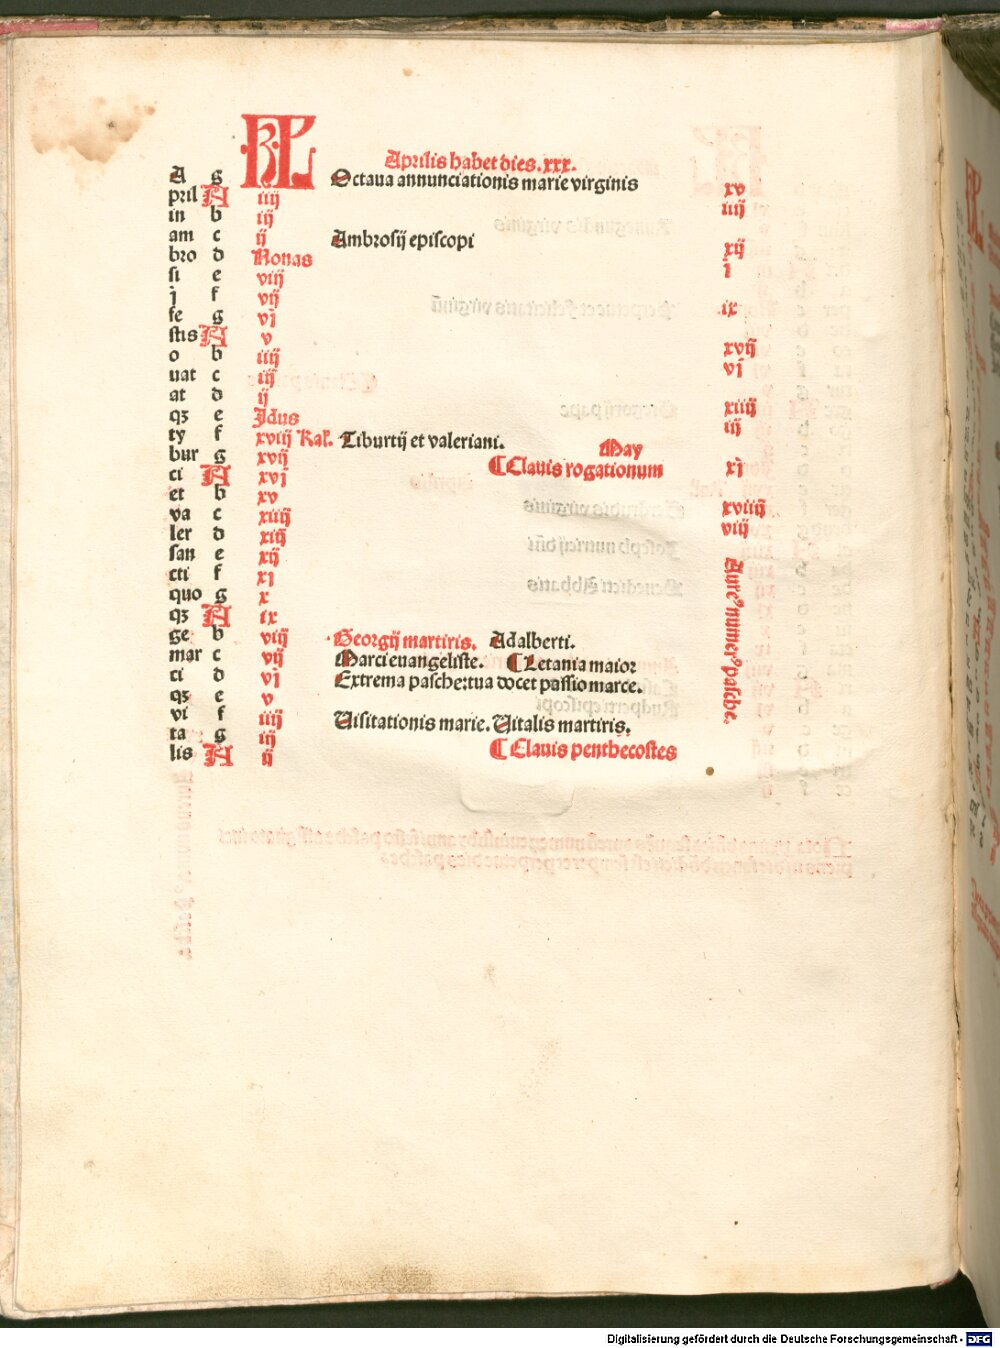 KL
Aprilis habet dies .xxx.
A g Octaua annunciationis marie virginis xv
pril A iiij iiij
in b iij
am c ij Ambrosij episcopi xij
bro d Nonas i
si e viij
j f vij ix
fe g vi
stis A v xvij
o b iiij vi
uat c iij
at d ij xiiij
qz e Idus iij
ty f xviij Kal. Tiburtij et valeriani. May
bur g xvij ¶ Clauis rogationum xi
ci A xvj
et b xv xviiij
va c xiiij viij
ler d xiij
san e xij
cti f xj
quo g x
qz A ix
ge b viij Georgij martiris. Adalberti.
mar c vij Marci euangeliste. ¶ Letania maior
ci d vi Extrema pasche: tua docet passio marce.
qz e v
vi f iiij Uisitationis marie. Uitalis martiris.
ta g iij
lis A ij ¶ Clauis penthecostes
Aure⁹ numer⁹ pasche.
Digitalisierung gefördert durch die Deutsche Forschungsgemeinschaft - DFG